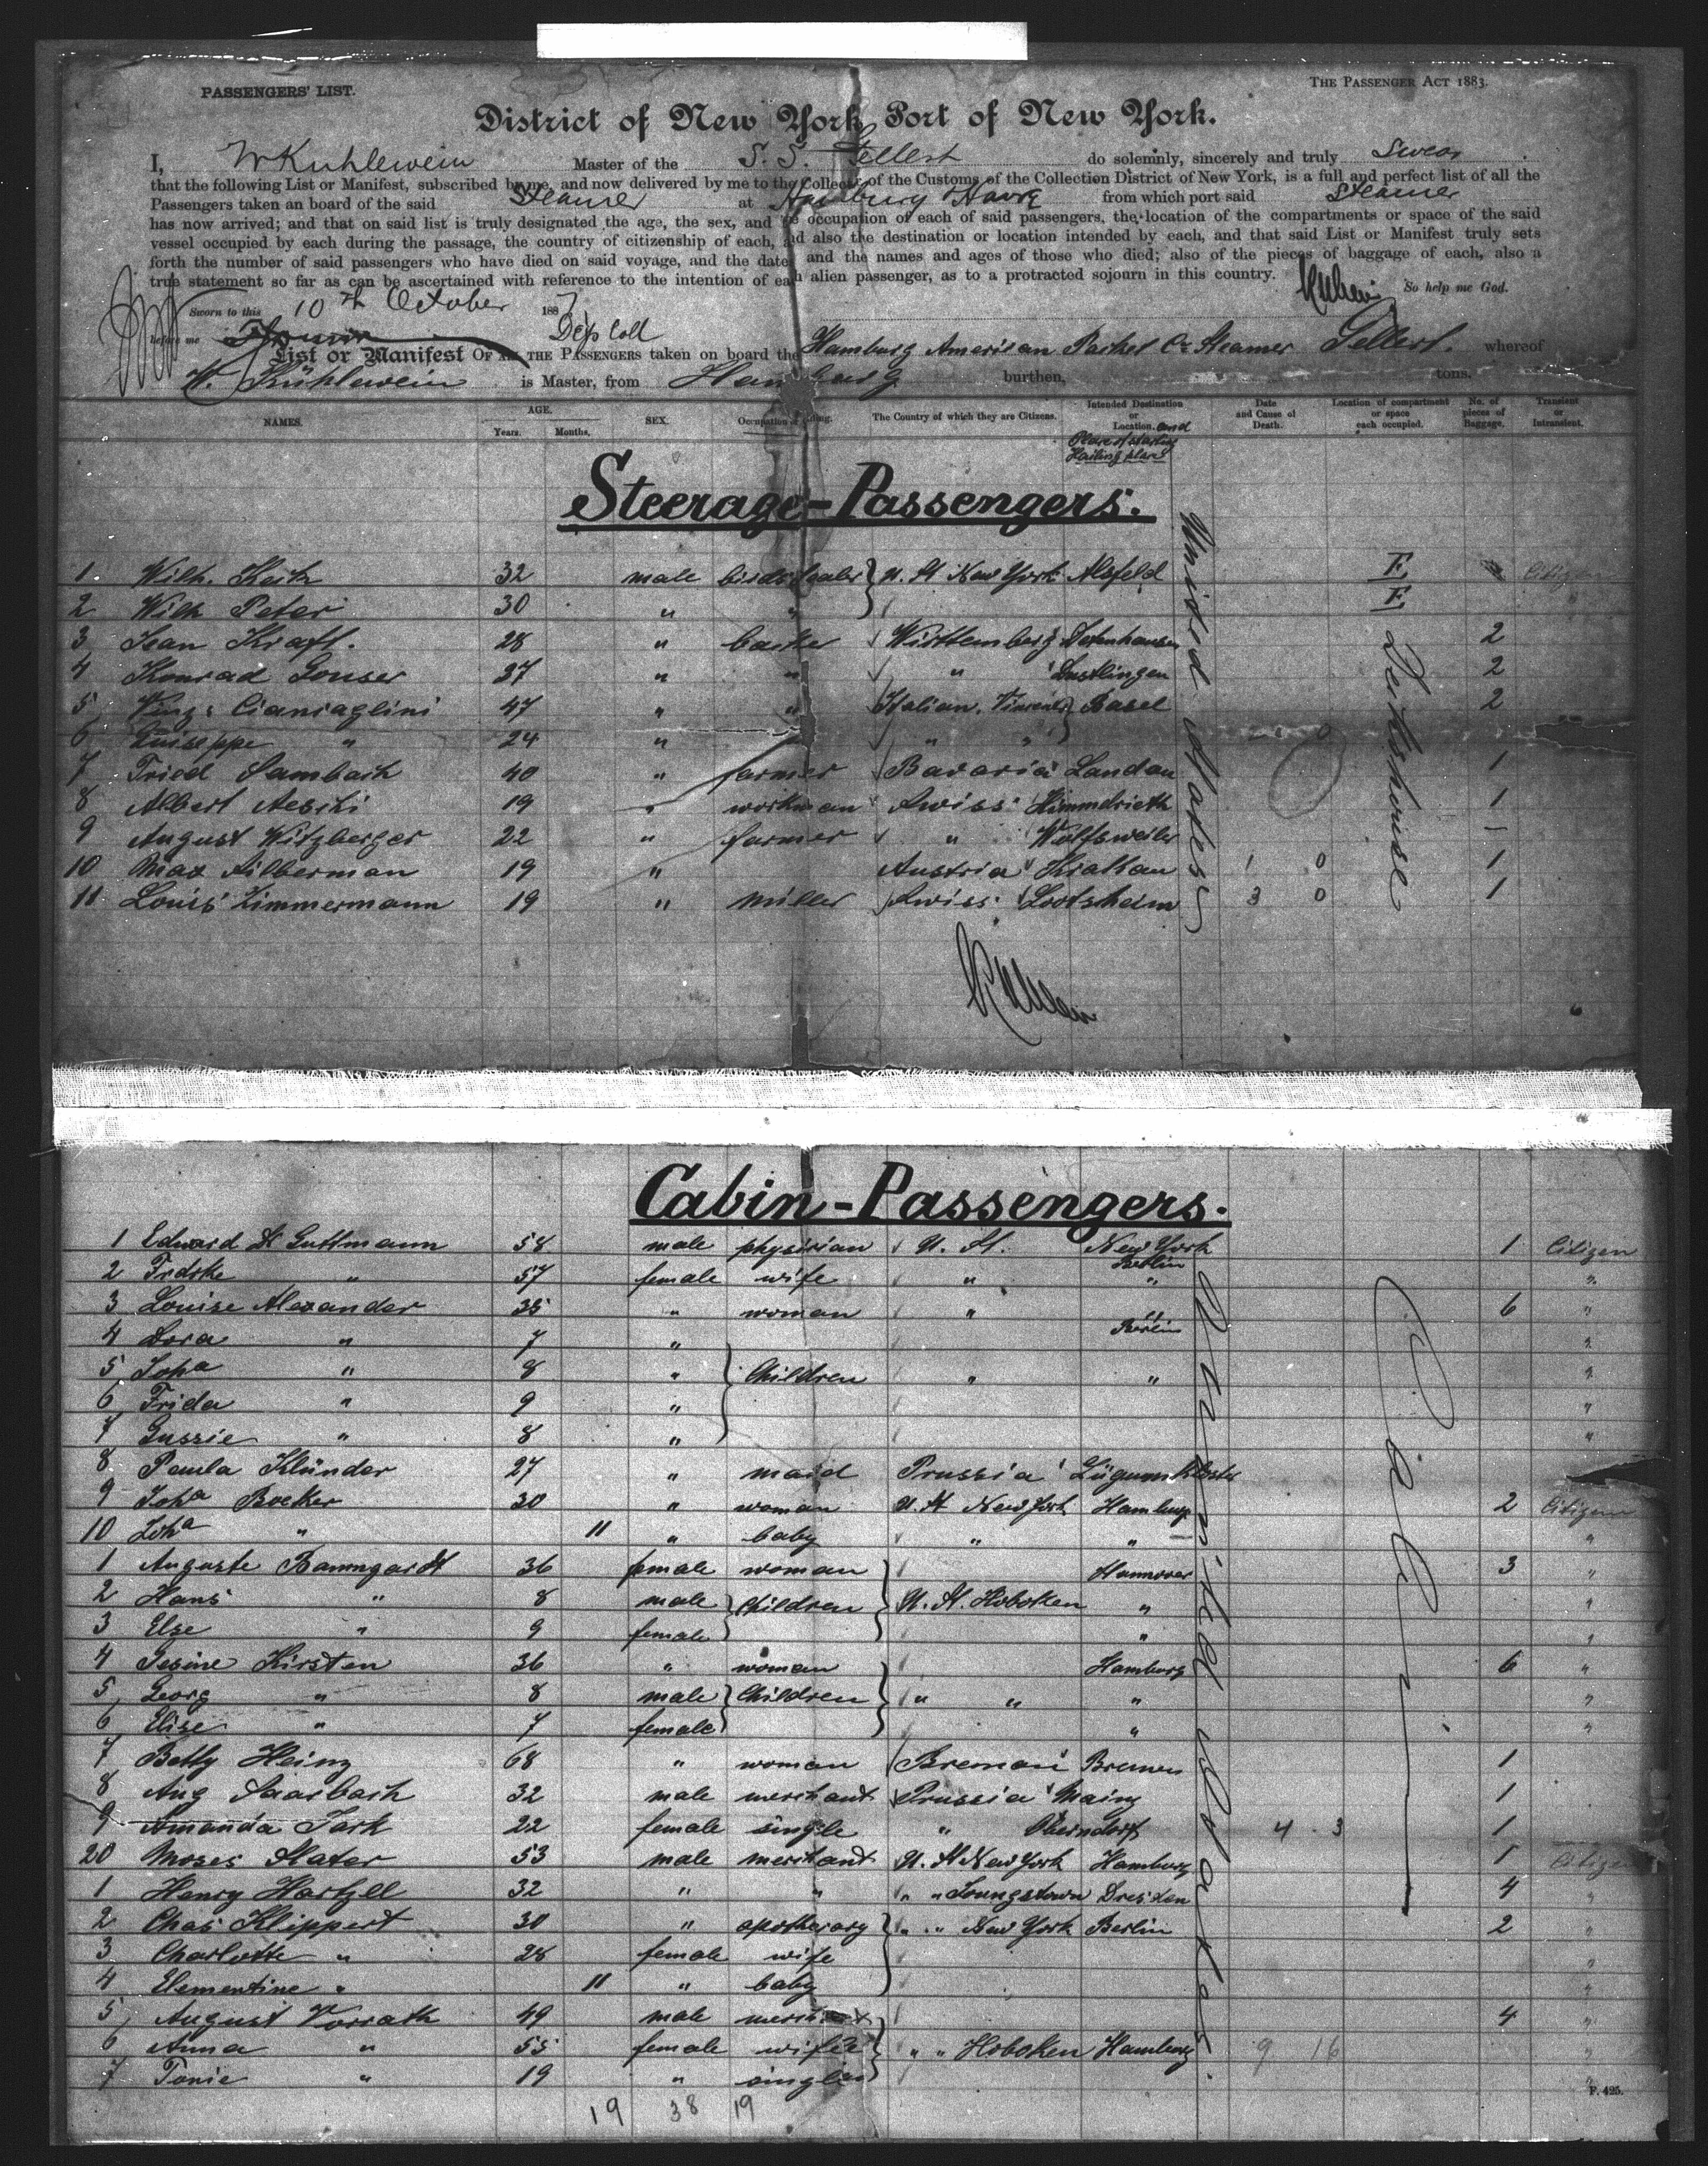 PASSENGERS' LIST.
THE PASSENGER ACT 1883.
District of New York, Port of New York.
I, W Kuhlewein Master of the S. S. Gellert do solemnly, sincerely and truly Swear
that the following List or Manifest, subscribed by me, and now delivered by me to the Collector of the Customs of the Collection District of New York, is a full and perfect list of all the
Passengers taken an board of the said Steamer at Hamburg Havre from which port said Steamer
has now arrived; and that on said list is truly designated the age, the sex, and the occupation of each of said passengers, the location of the compartments or space of the said
vessel occupied by each during the passage, the country of citizenship of each, and also the destination or location intended by each, and that said List or Manifest truly sets
forth the number of said passengers who have died on said voyage, and the dates and the names and ages of those who died; also of the pieces of baggage of each, also a
true statement so far as can be ascertained with reference to the intention of each alien passenger, as to a protracted sojourn in this country.
So help me God.
Sworn to this 10th October 1887
before me Dep Coll
List or Manifest OF ALL THE PASSENGERS taken on board the Hamburg American Packet Co Steamer Gellert. whereof
H. Kühlewein is Master, from Hamburg burthen, tons.
NAMES. AGE. Years. Months. SEX. Occupation or Calling. The Country of which they are Citizens. Intended Destination or Location. and Place of starting Hailing place Date and Cause of Death. Location of compartment or space each occupied. No. of pieces of Baggage. Transient or Intransient.
Steerage-Passengers.
1. Wilh. Keitz 32 male birdsdealer U. St New York Alsfeld F. Citizen
2 Wilh Peter 30 " " F. "
3 Jean Kraft. 28 " basker Württemberg 2
4 Konrad Gonser 27 " " " 2
5 Vinz: Cianciaglini 47 " " Italian. Basel 2
6 Guiseppe " 24 " " "
7 Fried Sambach 40 " farmer Bavaria Landau 1
8 Albert Aeschi 19 " workman Swiss 1
9 August Witzberger 22 " farmer " Wolfsweiler –
10 Max Silberman 19 " Austria Krakau 1 0 1
11 Louis Zimmermann 19 " miller Swiss Lootsheim 3 0 1
United States
Deckshouse
Cabin-Passengers.
1 Edward H Guttmann 58 male physician U. St. New York Berlin 1 Citizen
2 Fredrke " 57 female wife " " "
3 Louise Alexander 35 " woman " " 6 "
4 Dora " 7 " Berlin "
5 Joha " 8 " Children " " "
6 Frida " 9 " "
7 Gussie " 8 " "
8 Paula Klünder 27 " maid Prussia Lügumkloster
9 Joha Boecker 30 " woman U. St New York Hamburg 2 Citizen
10 Joha " 11 " baby " " "
1 Auguste Baumgardt 36 female woman Hannover 3 "
2 Hans " 8 male Children U. St. Hoboken " "
3 Else " 9 female " "
4 Gesine Kirsten 36 " woman Hamburg 6 "
5 Georg " 8 male Children " " " "
6 Elise " 7 female " "
7 Betty Heinz 68 " woman Bremen Bremen 1
8 Aug Saarbach 32 male merchant Prussia Mainz 1
9 Amanda Jark 22 female single " Oberndorf 4 3 1
20 Moses Slater 53 male merchant U. St New York Hamburg 1 Citizen
1 Henry Hartzell 32 " " " " Youngstown Dresden 4 "
2 Chas Klippert 30 " apothecary " " New York Berlin 2 "
3 Charlotte " 28 female wife "
4 Clementine " 11 " baby "
5 August Vorrath 49 male merchant 4 "
6 Anna " 55 female wife " " Hoboken Hamburg 9 16 "
7 Tonie " 19 " single "
United States
Cabin
19 38 19
F. 425.